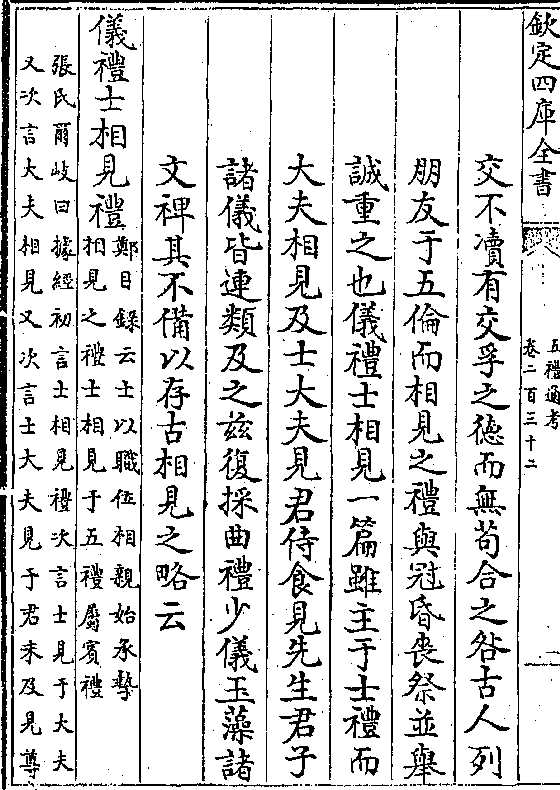 欽定四庫全書
五禮通考
卷二百三十二
交不瀆有交孚之德而無苟合之咎古人列
朋友于五倫而相見之禮與冠昏喪祭並舉
誠重之也儀禮士相見一篇雖主于士禮而
大夫相見及士大夫見君侍食見先生君子
諸儀皆連類及之兹復採曲禮少儀玉藻諸
文裨其不備以存古相見之略云
儀禮士相見禮
鄭目錄云士以職位相親始承摯
相見之禮士相見于五禮屬賓禮
張氏爾岐曰據經初言士相見禮次言士見于大夫
又次言大夫相見又次言士大夫見于君末及見尊